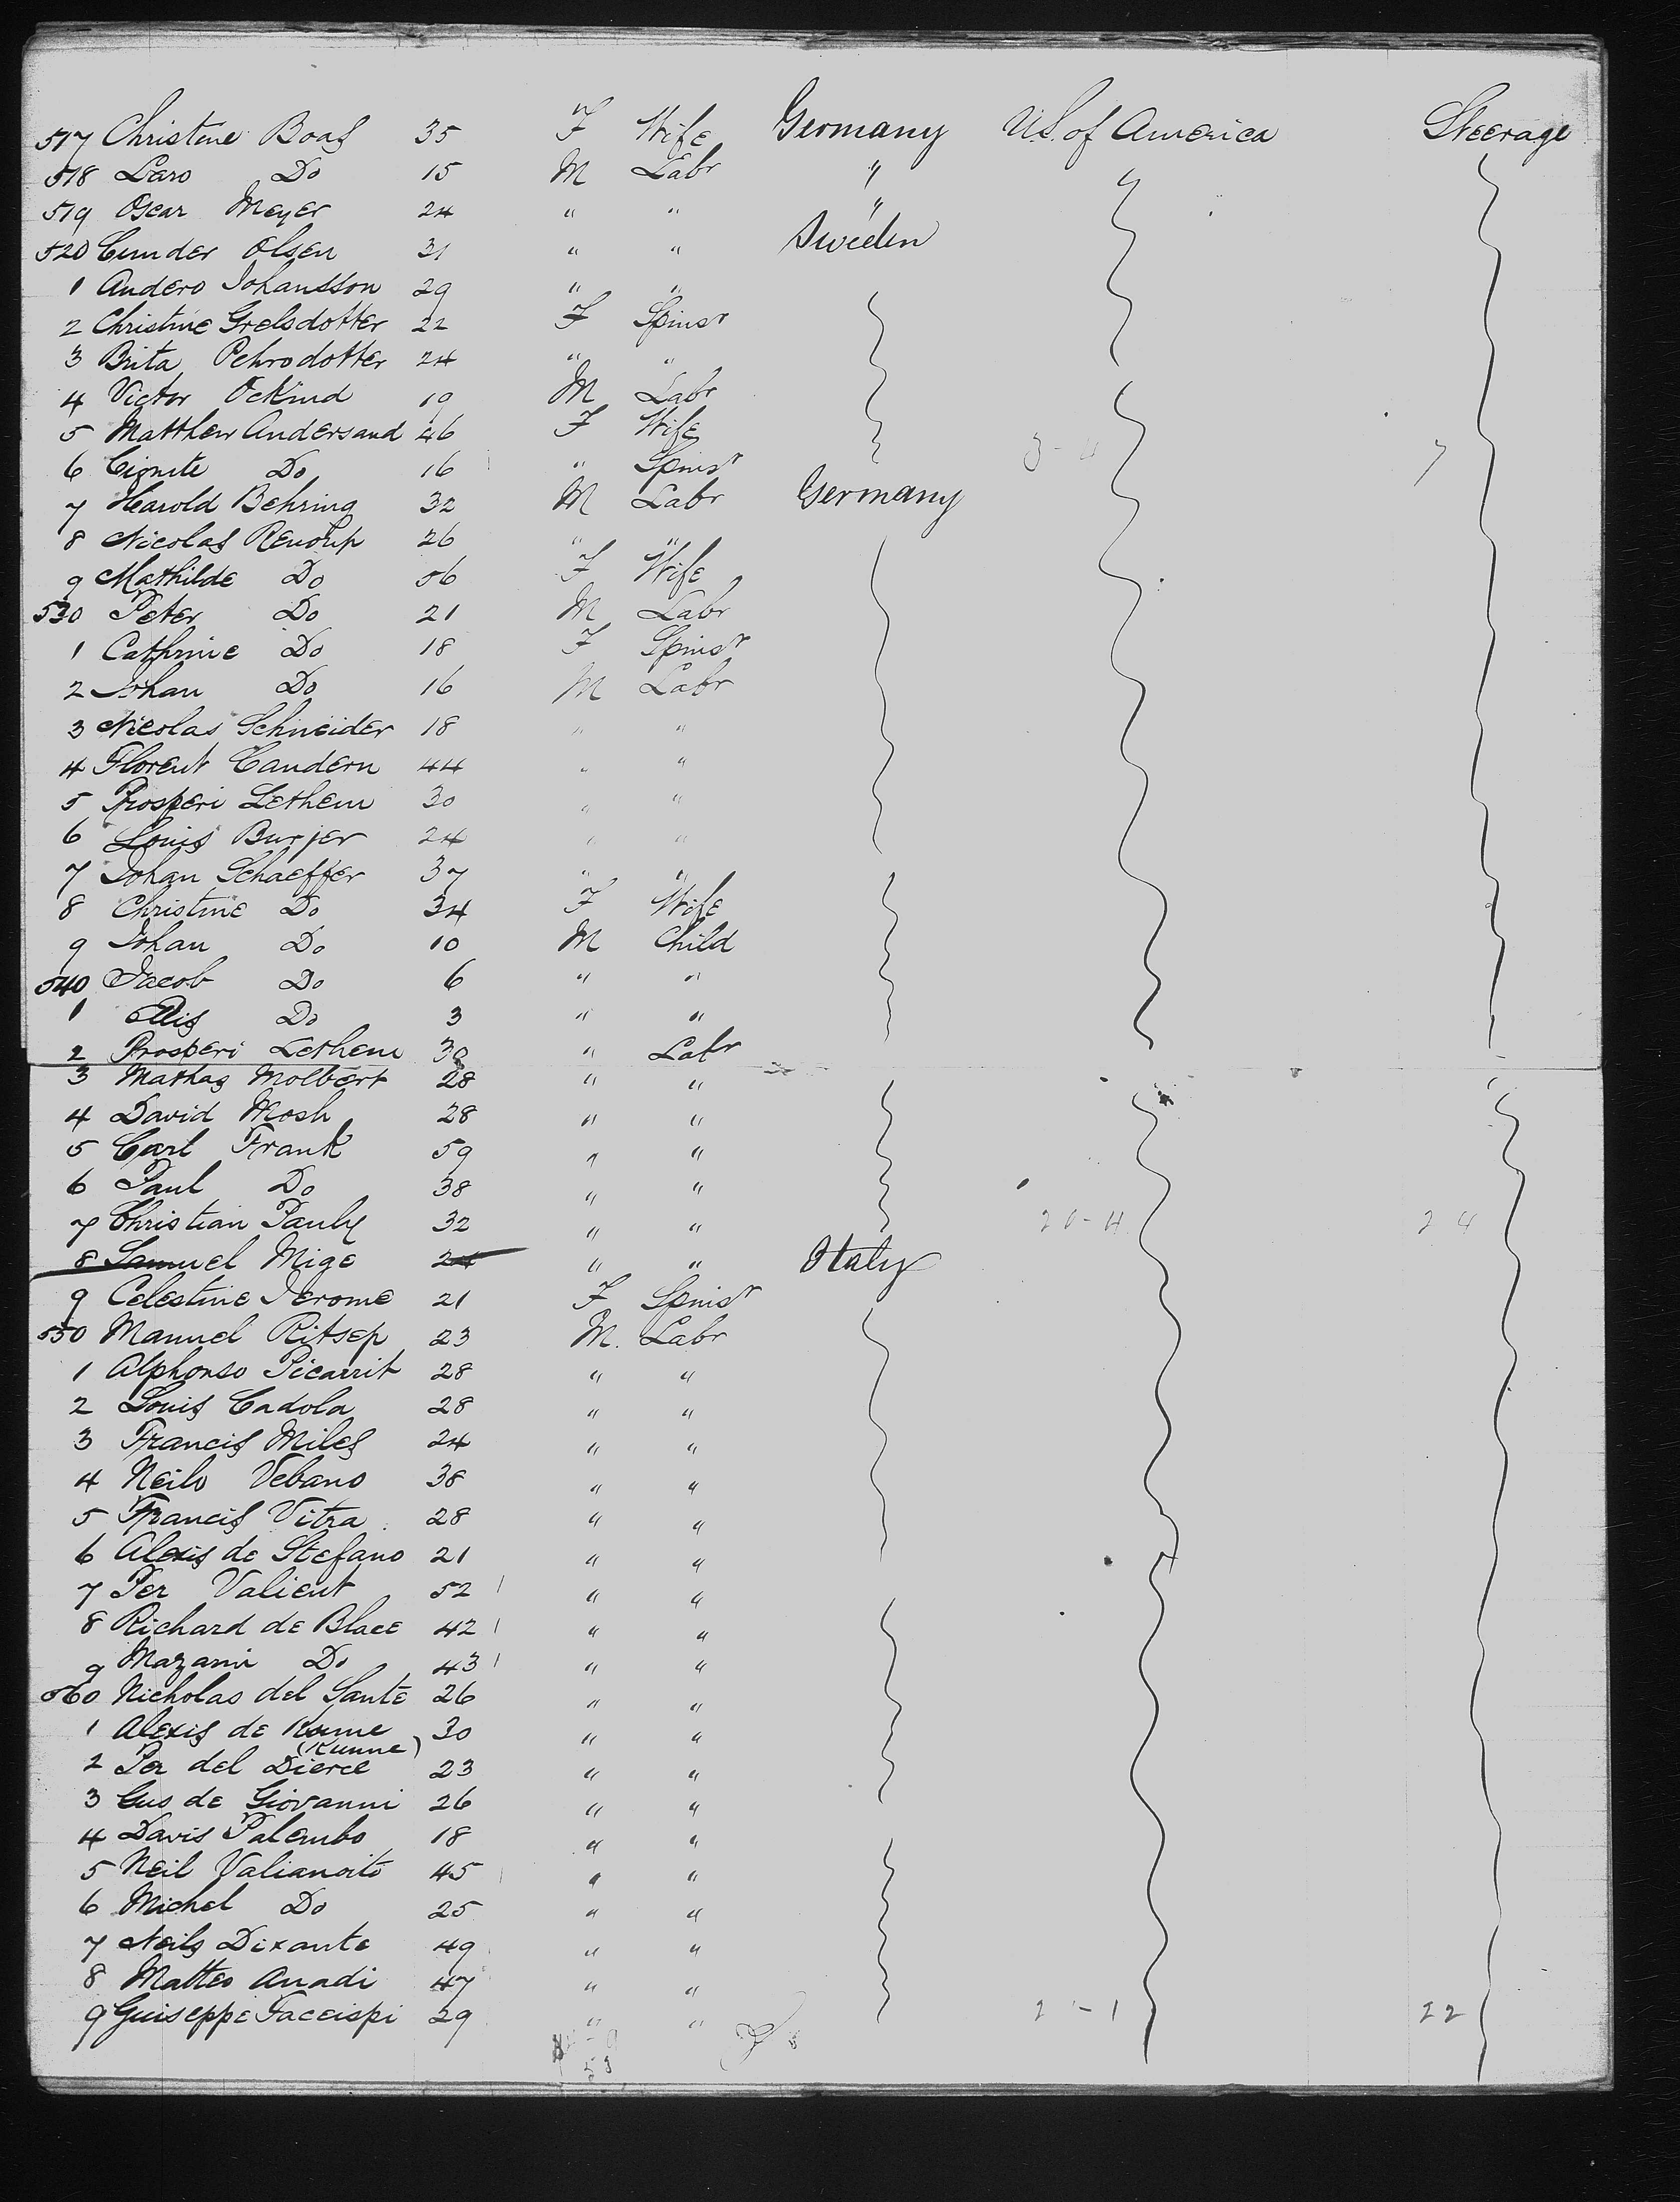 517 Christine Boas 35 F Wife Germany U.S. of America Steerage
518 Laro Do 15 M Labr " "
519 Oscar Meyer 24 " " "
520 Cunder Olsen 31 " " Sweden
1 Andero Johansson 29 " "
2 Christine Grelsdotter 22 F Spinsr
3 Brita Pehrodotter 24 " "
4 Victor Ockind 19 M Labr
5 Matthew Andersand 46 F Wife 7
6 Do 16 " Spinsr
7 Harold Behring 32 M Labr Germany
8 Nicolas 26 " "
9 Mathilde Do 56 F Wife
530 Peter Do 21 M Labr
1 Cathrine Do 18 F Spinsr
2 Johan Do 16 M Labr
3 Nicolas Schneider 18 " "
4 Florent Candern 44 " "
5 Prosperi Lethem 30 " "
6 Louis Burjer 24 " "
7 Johan Schaeffer 37 " "
8 Christine Do 34 F Wife
9 Johan Do 10 M Child
540 Jacob Do 6 " "
1 Ellis Do 3 " "
2 Prosperi Lethem 30 " Labr
3 Mathas Molbert 28 " "
4 David Mosh 28 " "
5 Carl Frank 59 " "
6 Paul Do 38 " "
7 Christian Pauly 32 " " 20-4 24
8 Samuel Mige 24 " " Italy
9 Celestine Jerome 21 F Spinsr
550 Manuel Ritsep 23 M. Labr
1 Alphonso Picarrit 28 " "
2 Louis Cadola 28 " "
3 Francis Miles 24 " "
4 Neilo Vebano 38 " "
5 Francis Vitra 28 " "
6 Alexis de Stefano 21 " "
7 Per Valient 52 " "
8 Richard de Blace 42 " "
9 Mazami Do 43 " "
560 Nicholas del Sante 26 " "
1 Alexis de Kunne 30 " "
(Kunne)
2 Per del Dierce 23 " "
3 Gus de Giovanni 26 " "
4 Davis Palembo 18 " "
5 Neil Valianoito 45 " "
6 Michel Do 25 " "
7 Neils Dixante 49 " "
8 Matteo Anadi 47 " "
9 Guiseppe Faceispi 29 " " 21-1 22